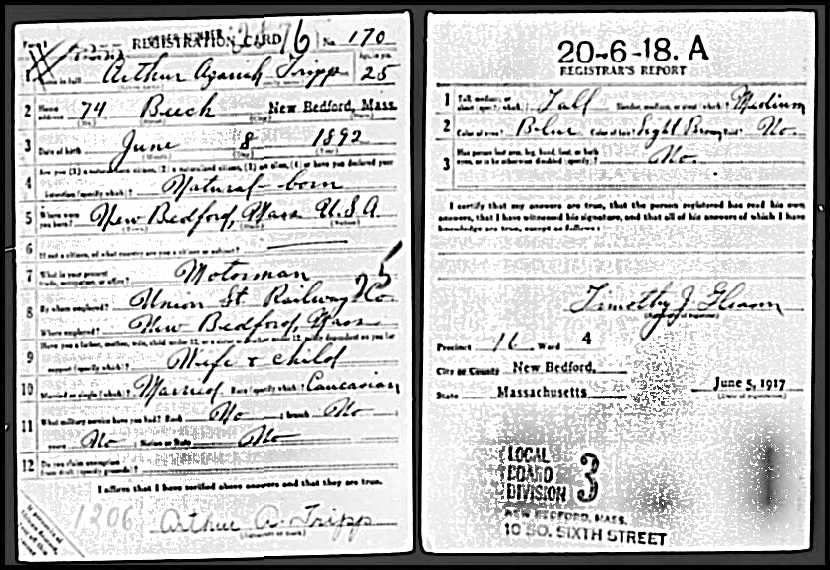 REGISTRATION CARD No. 170
1 Name in full Arthur Azariah Tripp 25
2 Home address 74 Beech New Bedford, Mass.
3 Date of birth June 8 1892
4 Natural-born
5 Where were you born? New Bedford, Mass U.S.A.
6 If not a citizen, of what country are you a citizen or subject?
7 What is your present trade, occupation, or office? Motorman
8 By whom employed? Union St. Railway Co.
Where employed? New Bedford, Mass
9 Have you a father, mother, wife, child under 12, or a sister or brother under 12, solely dependent on you for
support (specify which)? Wife & child
10 Married or single (which)? Married Race (specify which)? Caucasian
11 What military service have you had? Rank No branch No
years No Nation or State No
12 Do you claim exemption from draft (specify grounds)?
I affirm that I have verified above answers and that they are true.
1206 Arthur A. Tripp
20-6-18. A
REGISTRAR'S REPORT
1 Tall, medium, or short (specify which)? Tall Slender, medium, or stout (which)? Medium
2 Color of eyes? Blue Color of hair? Light Brown Bald? No
3 Has person lost arm, leg, hand, foot, or both eyes, or is he otherwise disabled (specify)? No
I certify that my answers are true, that the person registered has read his own
answers, that I have witnessed his signature, and that all of his answers of which I have
knowledge are true, except as follows:
Timothy J
Precinct 16 Ward 4
City or County New Bedford,
State Massachusetts June 5, 1917
(Date of registration)
LOCAL
BOARD
DIVISION 3
NEW BEDFORD, MASS.
10 SO. SIXTH STREET